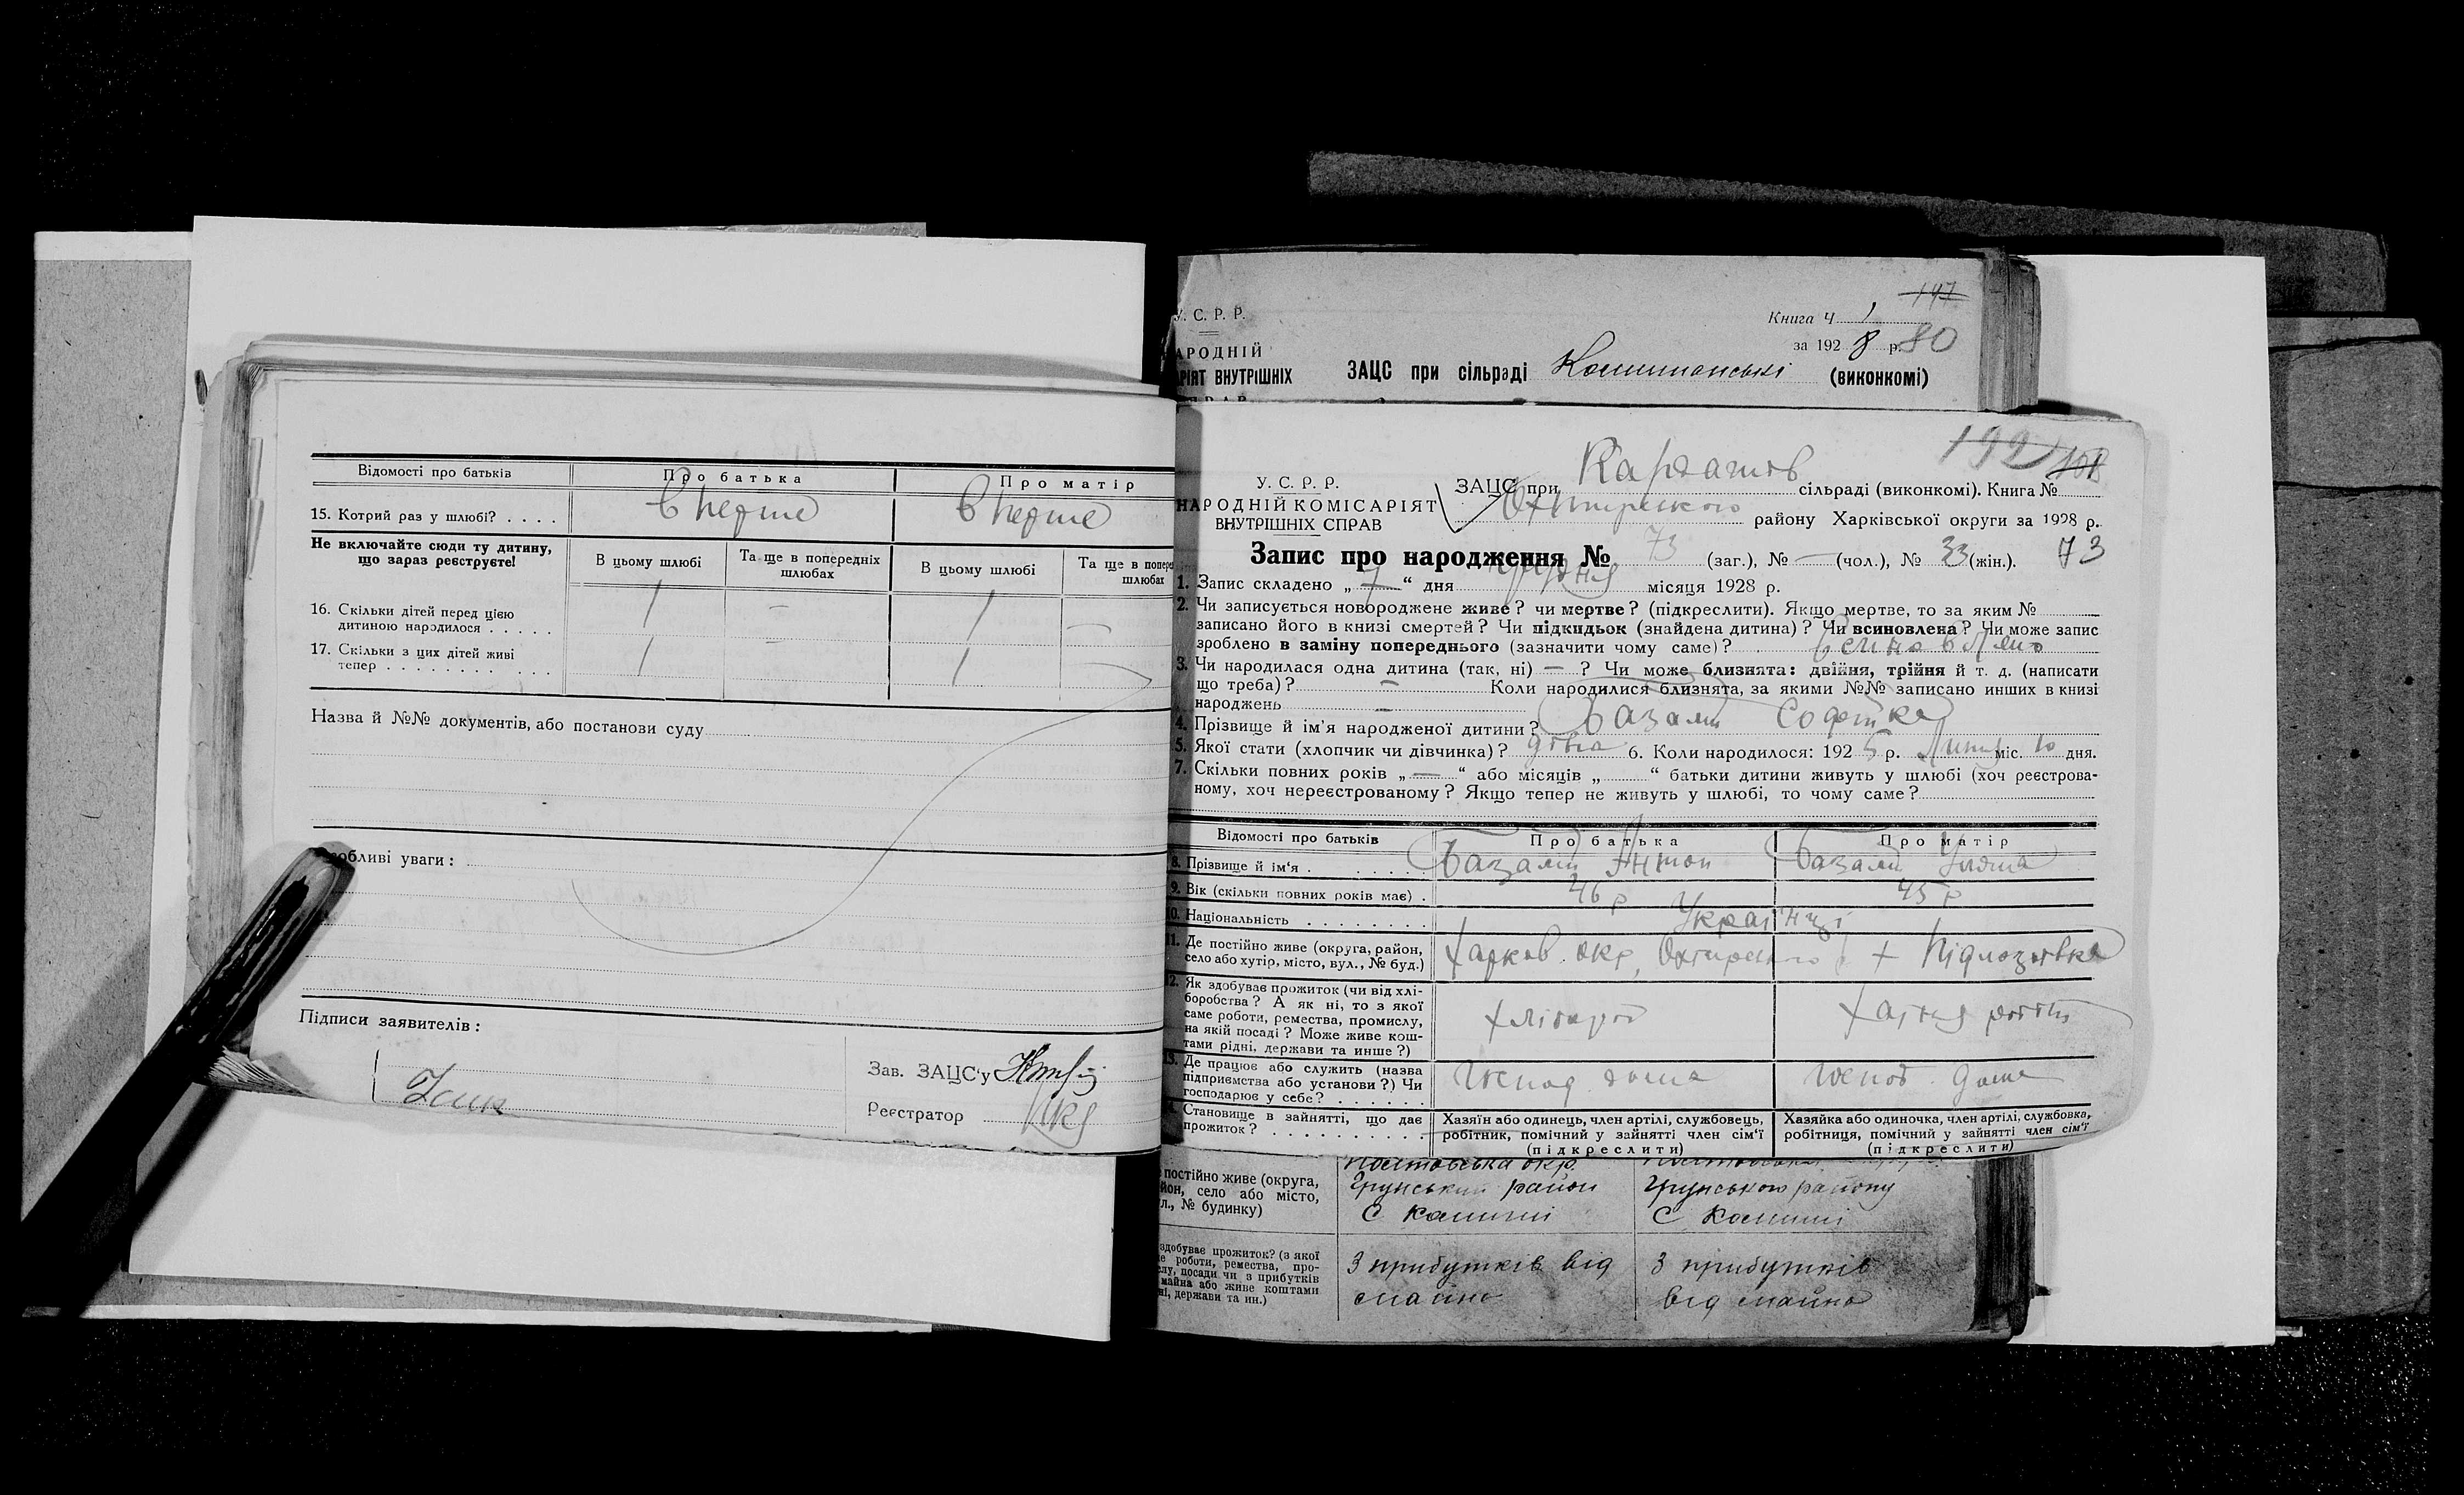 Відомості про батьків
Про батька
Про матір
15. Котрий раз у шлюбі? . . . .
вперше
вперше
Не включайте сюди ту дитину,
що зараз реєструєте!
В цьому шлюбі
Та ще в попередніх
шлюбах
В цьому шлюбі
Та ще в попере
шлюбах
16. Скільки дітей перед цією
дитиною народилося . . . . .
1
—
1
—
17. Скільки з цих дітей живі
тепер . . . . . . . . . . .
1
—
1
Назва й №№ документів, або постанови суду
обливі уваги:
Підписи заявителів:
Зав. ЗАЦС'у
Реєстратор
147
У. С. Р. Р.
Книга Ч 1
за 1928 р. 80
АРОДНІЙ
АРІЯТ ВНУТРІШНІХ
ЗАЦС при сільраді
(виконкомі)
У. С. Р. Р.
НАРОДНІЙ КОМІСАРІЯТ
ВНУТРІШНІХ СПРАВ
ЗАЦС при
сільраді (виконкомі). Книга №
району Харківської округи за 1928 р.
Запис про народження № 73 (заг.), № — (чол.), № 33 (жін.). 73
1. Запис складено „ 7 “ дня грудня місяця 1928 р.
2. Чи записується новороджене живе? чи мертве? (підкреслити). Якщо мертве, то за яким №
записано його в книзі смертей? Чи підкидьок (знайдена дитина)? Чи всиновлена? Чи може запис
зроблено в заміну попереднього (зазначити чому саме)?
3. Чи народилася одна дитина (так, ні) — ? Чи може близнята: двійня, трійня й т. д. (написати
що треба)? — Коли народилися близнята, за якими №№ записано инших в книзі
народжень —
4. Прізвище й ім'я народженої дитини?
5. Якої стати (хлопчик чи дівчинка)? дівча 6. Коли народилося: 1925 р. Липня міс. 10 дня.
7. Скільки повних років „ — “ або місяців „ “ батьки дитини живуть у шлюбі (хоч реєстрова-
ному, хоч нереєстрованому? Якщо тепер не живуть у шлюбі, то чому саме?
Відомості про батьків
Про батька
Про матір
8. Прізвище й ім'я . . . . . .
Антон
9. Вік (скільки повних років має) .
46 р
45 р
10. Національність . . . . . . . .
Українці
11. Де постійно живе (округа, район,
село або хутір, місто, вул., № буд.)
Харков. окр,
12. Як здобуває прожиток (чи від хлі-
боробства? А як ні, то з якої
саме роботи, ремества, промислу,
на якій посаді? Може живе кош-
тами рідні, держави та инше?)
13. Де працює або служить (назва
підприємства або установи?) Чи
господарює у себе? . . . . . .
дома
дома
Становище в зайнятті, що дає
прожиток? . . . . . . . . . . .
Хазяїн або одинець, член артілі, службовець,
робітник, помічний у зайнятті член сім'ї
(підкреслити)
Хазяйка або одиночка, член артілі, службовка,
робітниця, помічний у зайнятті член сім'ї
(підкреслити)
постійно живе (округа,
йон, село або місто,
л., № будинку)
Грунський район
Грунського району
здобуває прожиток? (з якої
е роботи, ремества, про-
слу, посади чи з прибутків
майна або живе коштами
ні, держави та ин.)
З прибутків від
майна
З прибутків
від майна